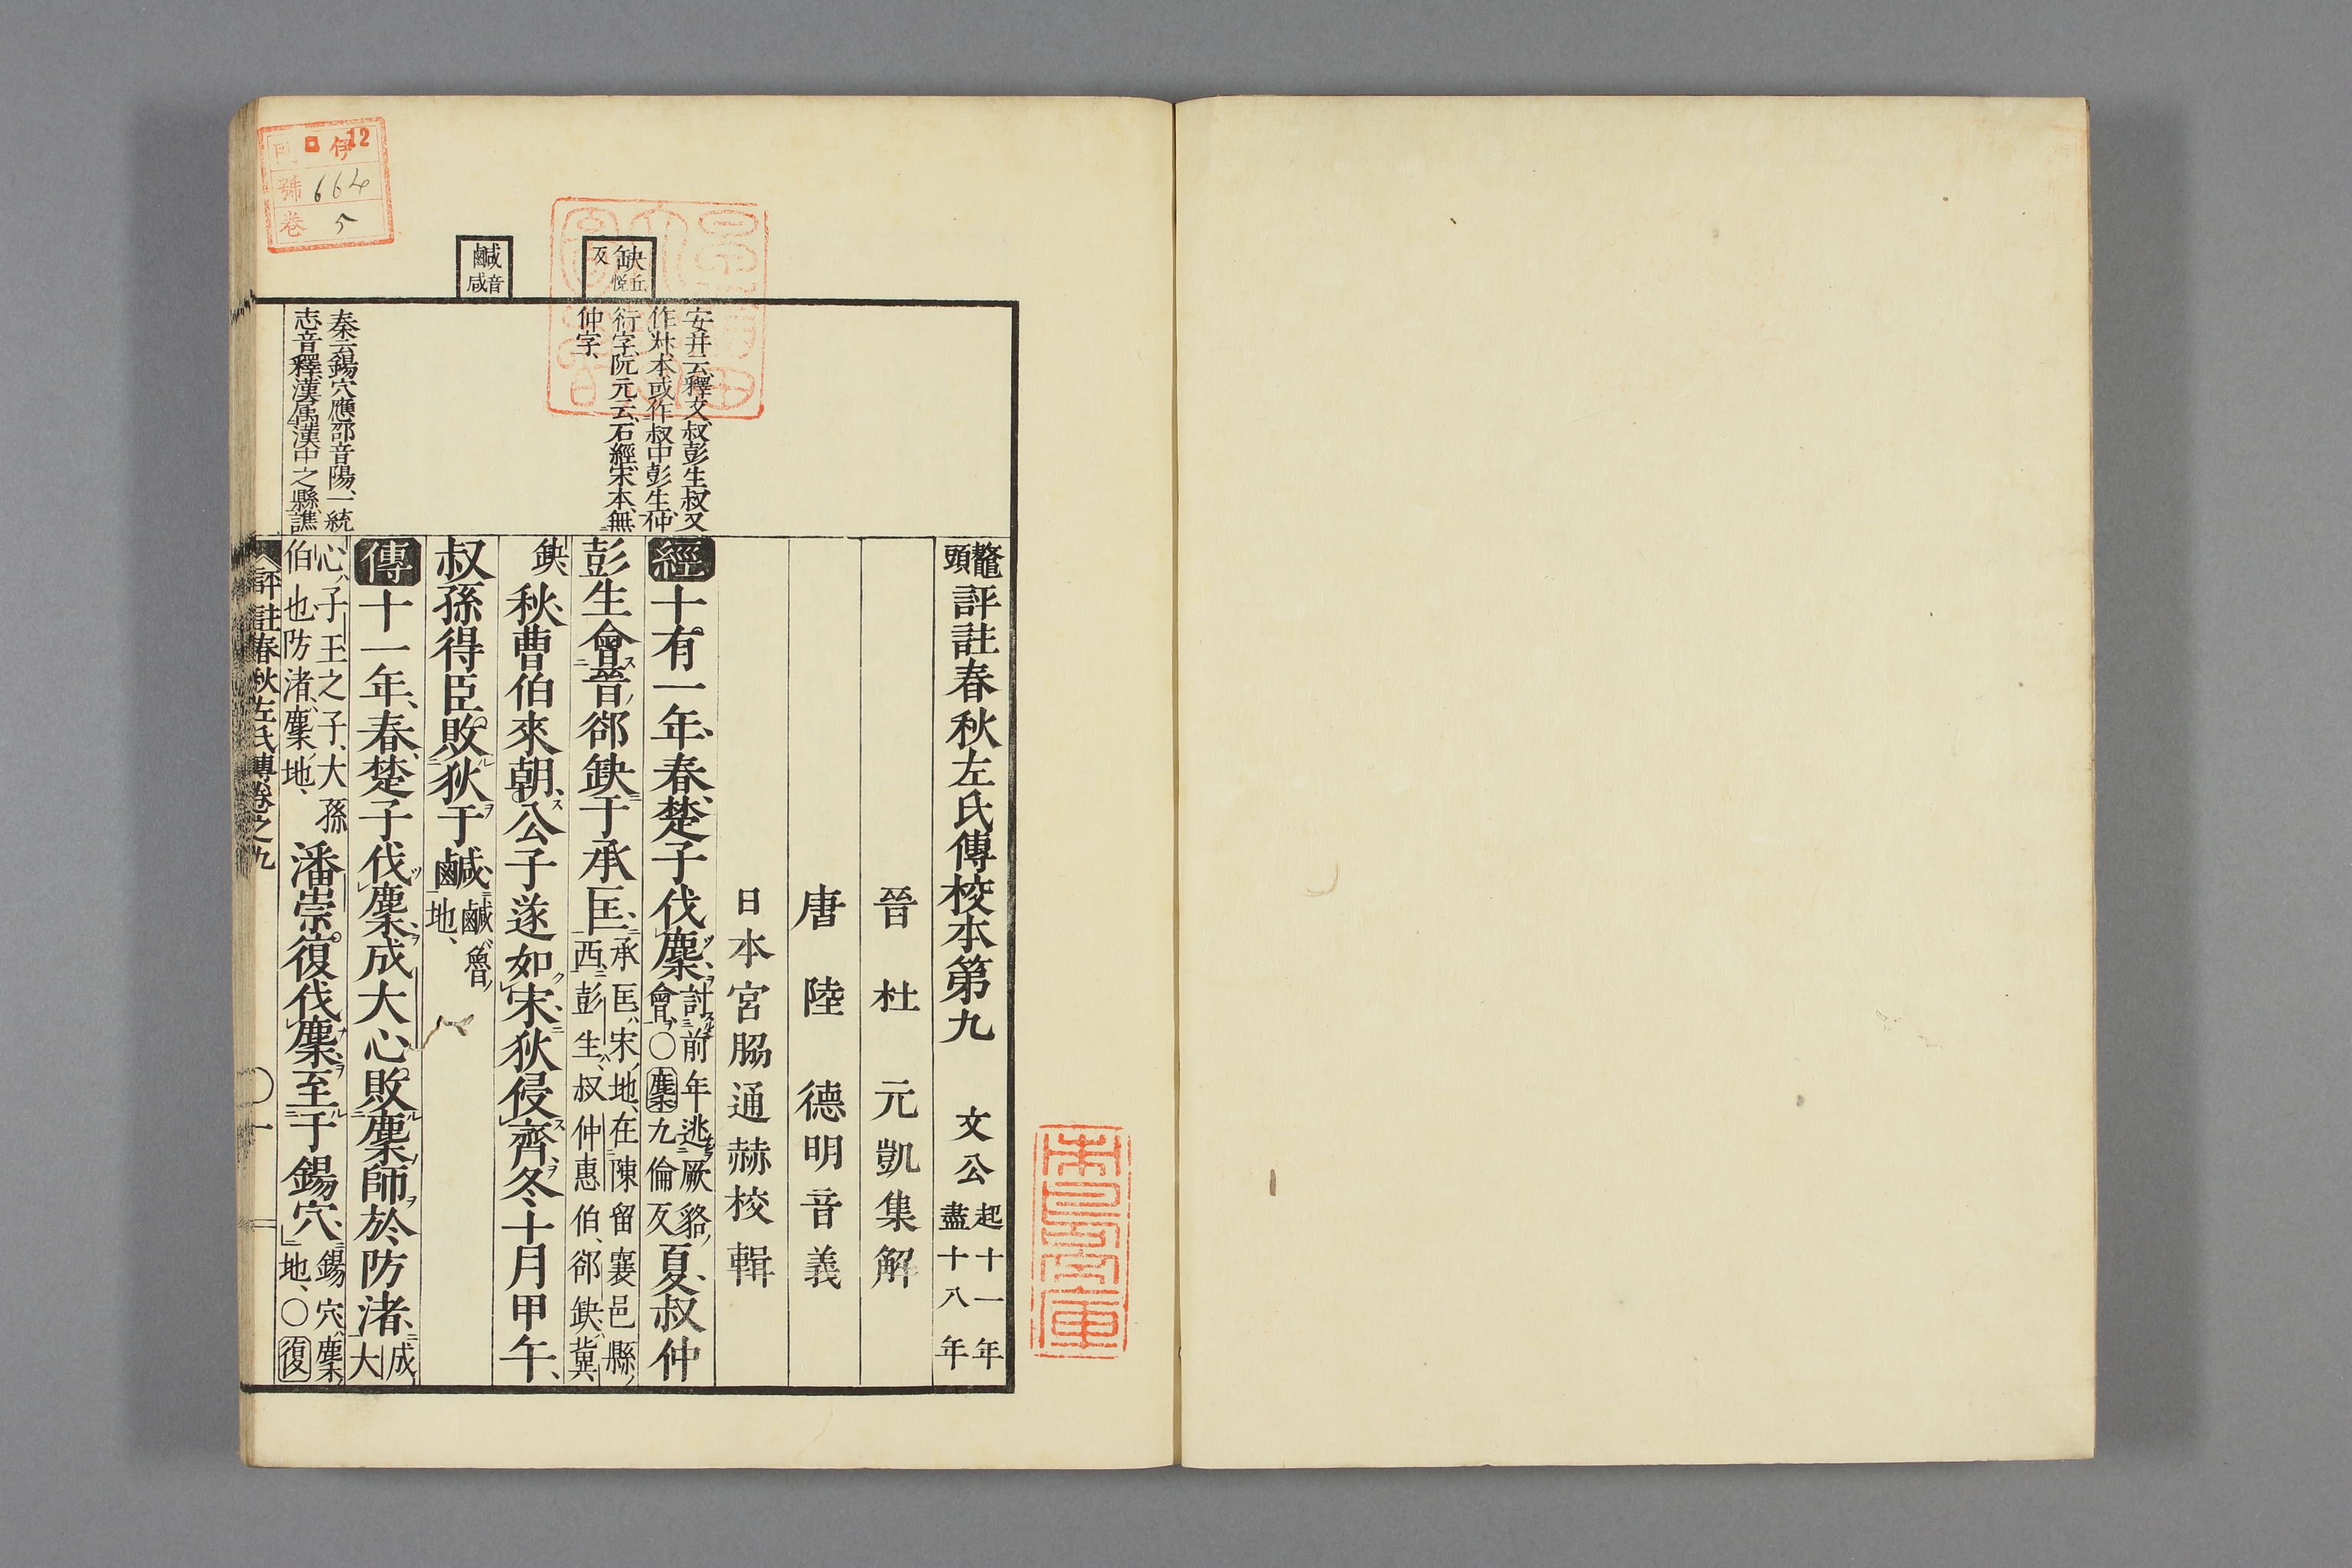 鼇頭評註春秋左氏傳校本第九 文公起十一年盡十八年
晉 杜 元凱集解
唐 陸 德明音義
日本宮脇通赫校輯
經十有一年、春、楚子伐麇、討前年逃厥貉ノ會、〇麇九倫反夏、叔仲
彭生會晉郤缺于承匡、承匡、宋地、在陳留襄邑縣西、彭生、叔仲惠伯、郤缺、冀
缺、秋、曹伯來朝、公子遂如宋、狄侵齊、冬、十月甲午、
叔孫得臣敗狄于鹹、鹹、魯地、
傳十一年、春、楚子伐麇、成大心敗麇師於防渚、成大
心、子玉之子、大孫伯也、防渚、麇地、潘崇復伐麇、至于錫穴、錫穴、麇地、〇復
評註春秋左氏傳卷之九
〇一
缺丘悅反
鹹音咸
安井云、釋文、叔彭生、叔又
作尗、本或作叔中彭生、仲
衍字、阮元云、石經、宋本、無
仲字、
秦云、錫穴應邵音陽、一統
志音釋、漢屬漢中之縣、譙
12
伊
號 664
卷 5